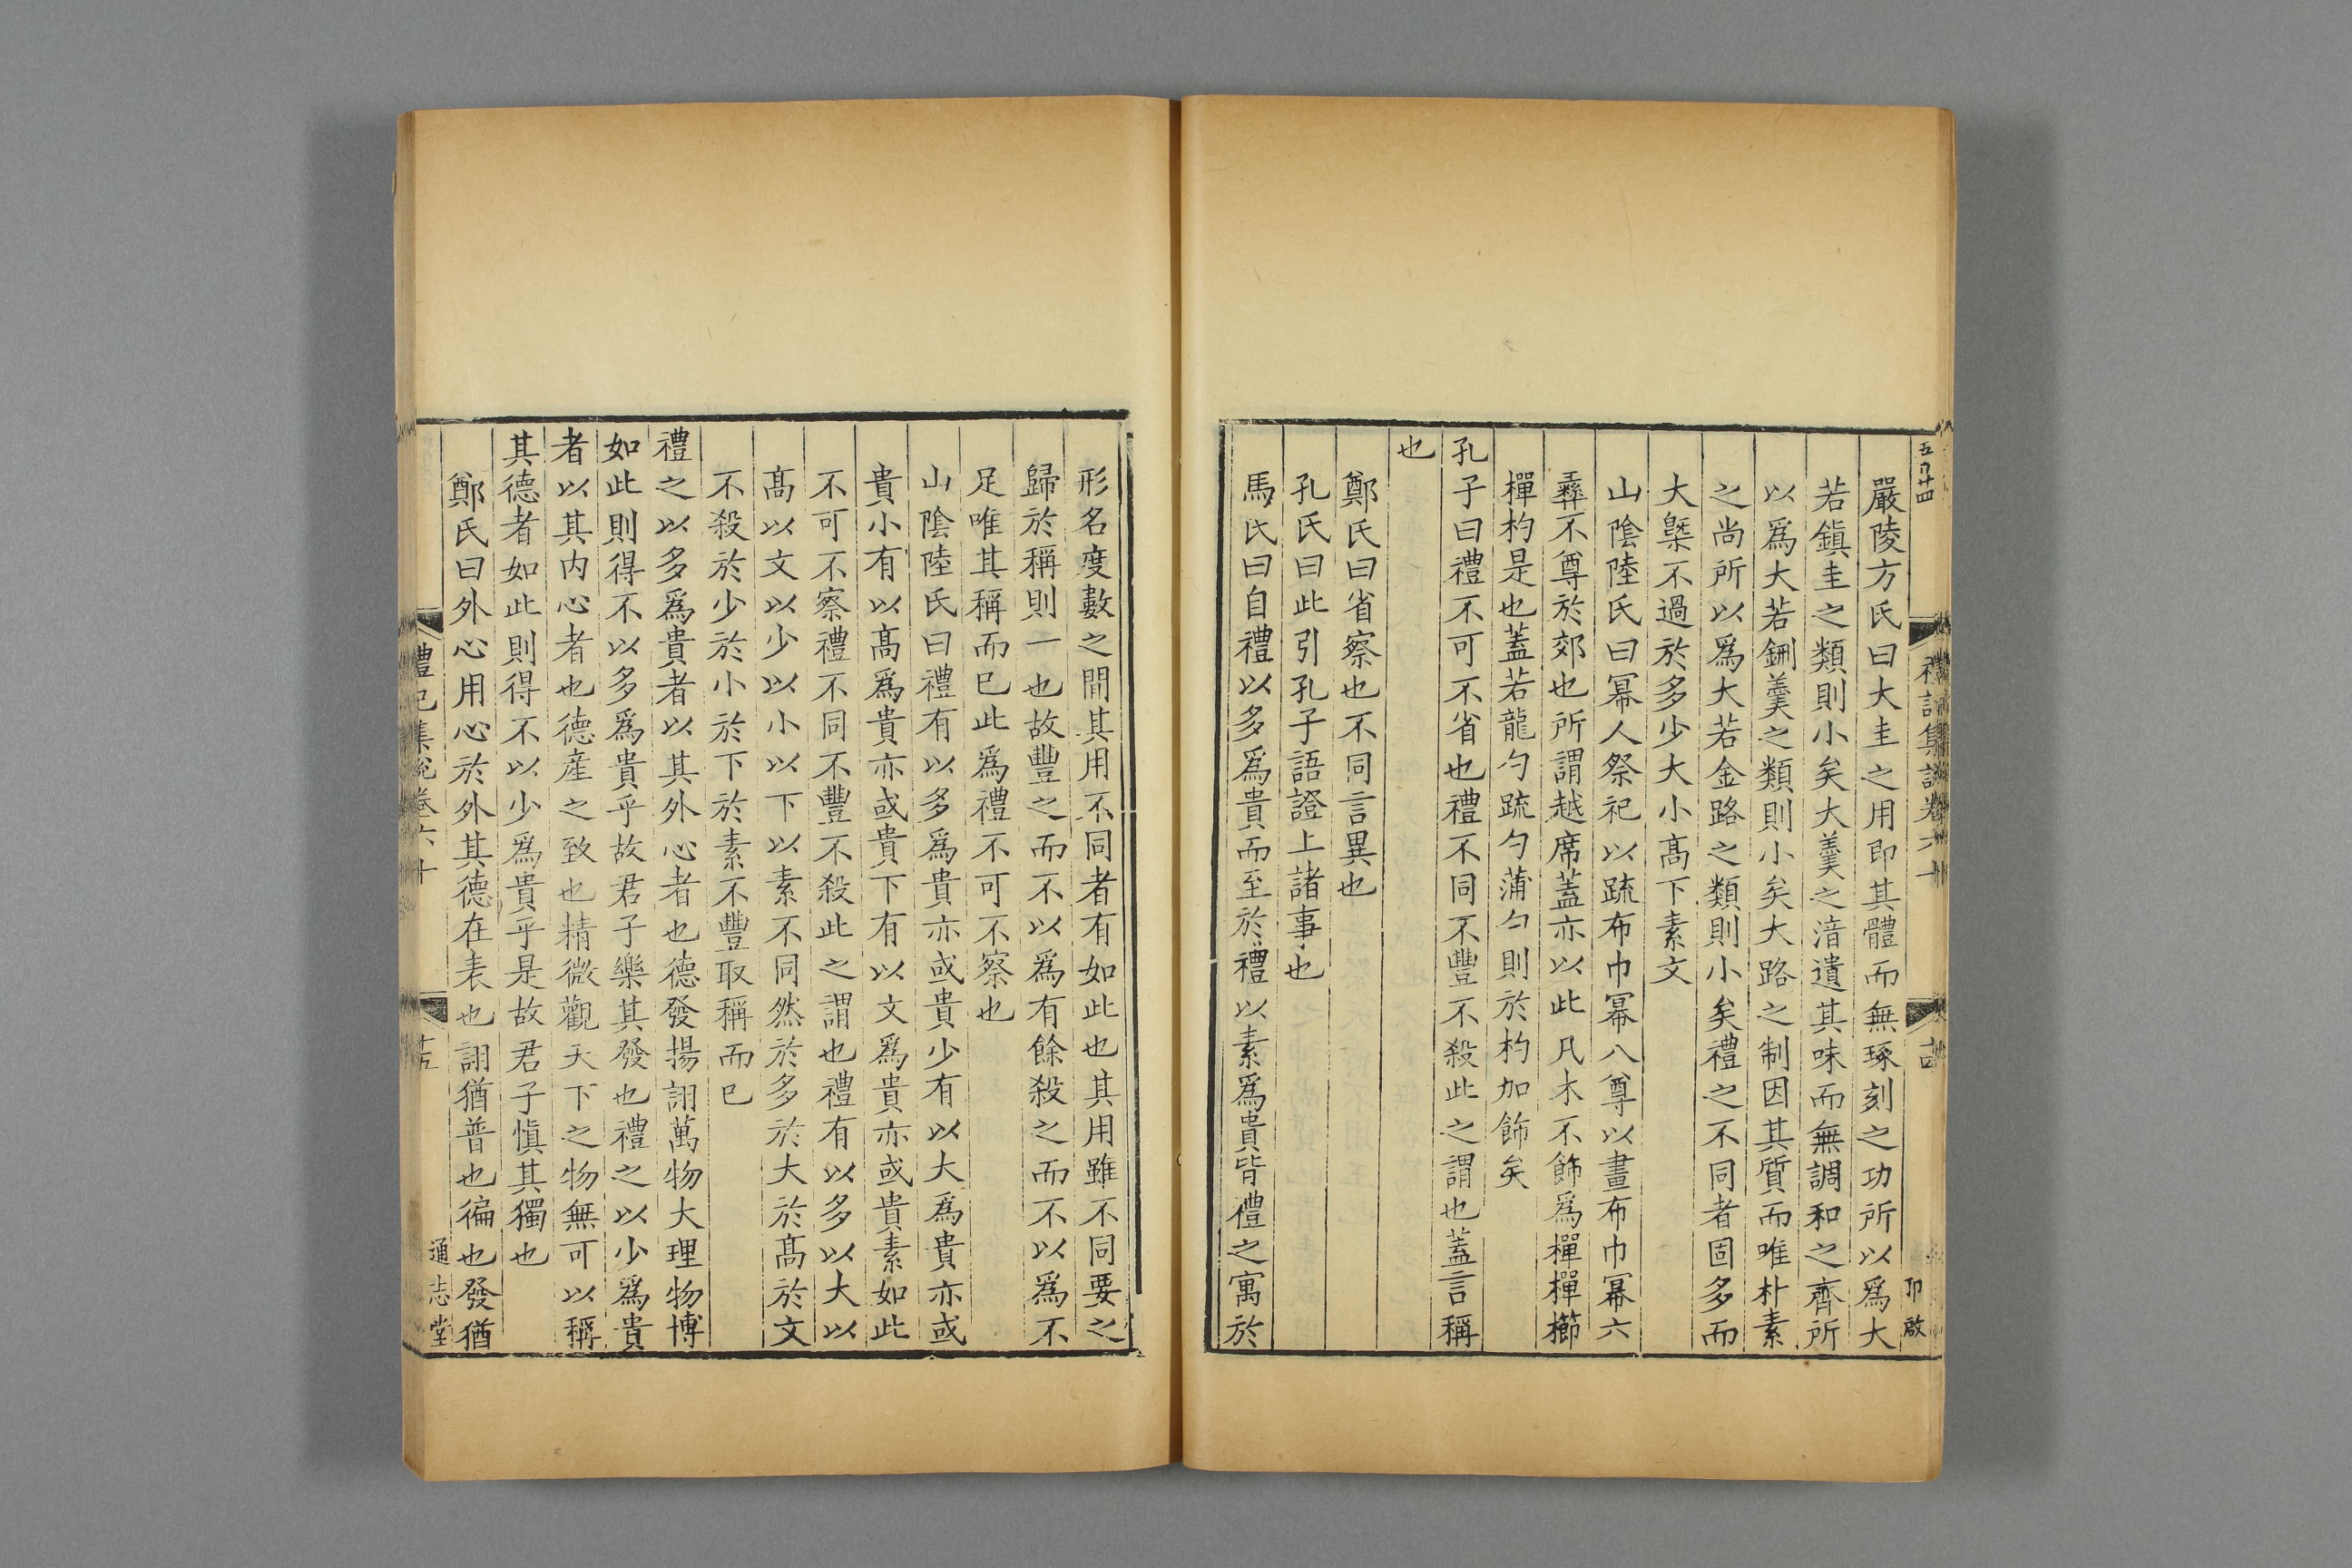 嚴陵方氏曰大圭之用即其體而無琢刻之功所以爲大
若鎮圭之類則小矣大羹之湆遺其味而無調和之齊所
以爲大若鉶羹之類則小矣大路之制因其質而唯朴素
之尚所以爲大若金路之類則小矣禮之不同者固多而
大槩不過於多少大小髙下素文
山陰陸氏曰冪人祭祀以疏布巾冪八尊以畫布巾冪六
彞不尊於郊也所謂越席蓋亦以此凡木不飾爲樿樿櫛
樿杓是也蓋若龍勺疏勺蒲勺則於杓加飾矣
孔子曰禮不可不省也禮不同不豐不殺此之謂也蓋言稱
也
鄭氏曰省察也不同言異也
孔氏曰此引孔子語證上諸事也
馬氏曰自禮以多爲貴而至於禮以素爲貴皆禮之寓於
形名度數之間其用不同者有如此也其用雖不同要之
歸於稱則一也故豐之而不以爲有餘殺之而不以爲不
足唯其稱而已此爲禮不可不察也
山陰陸氏曰禮有以多爲貴亦或貴少有以大爲貴亦或
貴小有以髙爲貴亦或貴下有以文爲貴亦或貴素如此
不可不察禮不同不豐不殺此之謂也禮有以多以大以
髙以文以少以小以下以素不同然於多於大於髙於文
不殺於少於小於下於素不豐取稱而已
禮之以多爲貴者以其外心者也德發揚詡萬物大理物博
如此則得不以多爲貴乎故君子樂其發也禮之以少爲貴
者以其内心者也德産之致也精微觀天下之物無可以稱
其德者如此則得不以少爲貴乎是故君子慎其獨也
鄭氏曰外心用心於外其德在表也詡猶普也徧也發猶
禮記集說卷六十
十五
通志堂